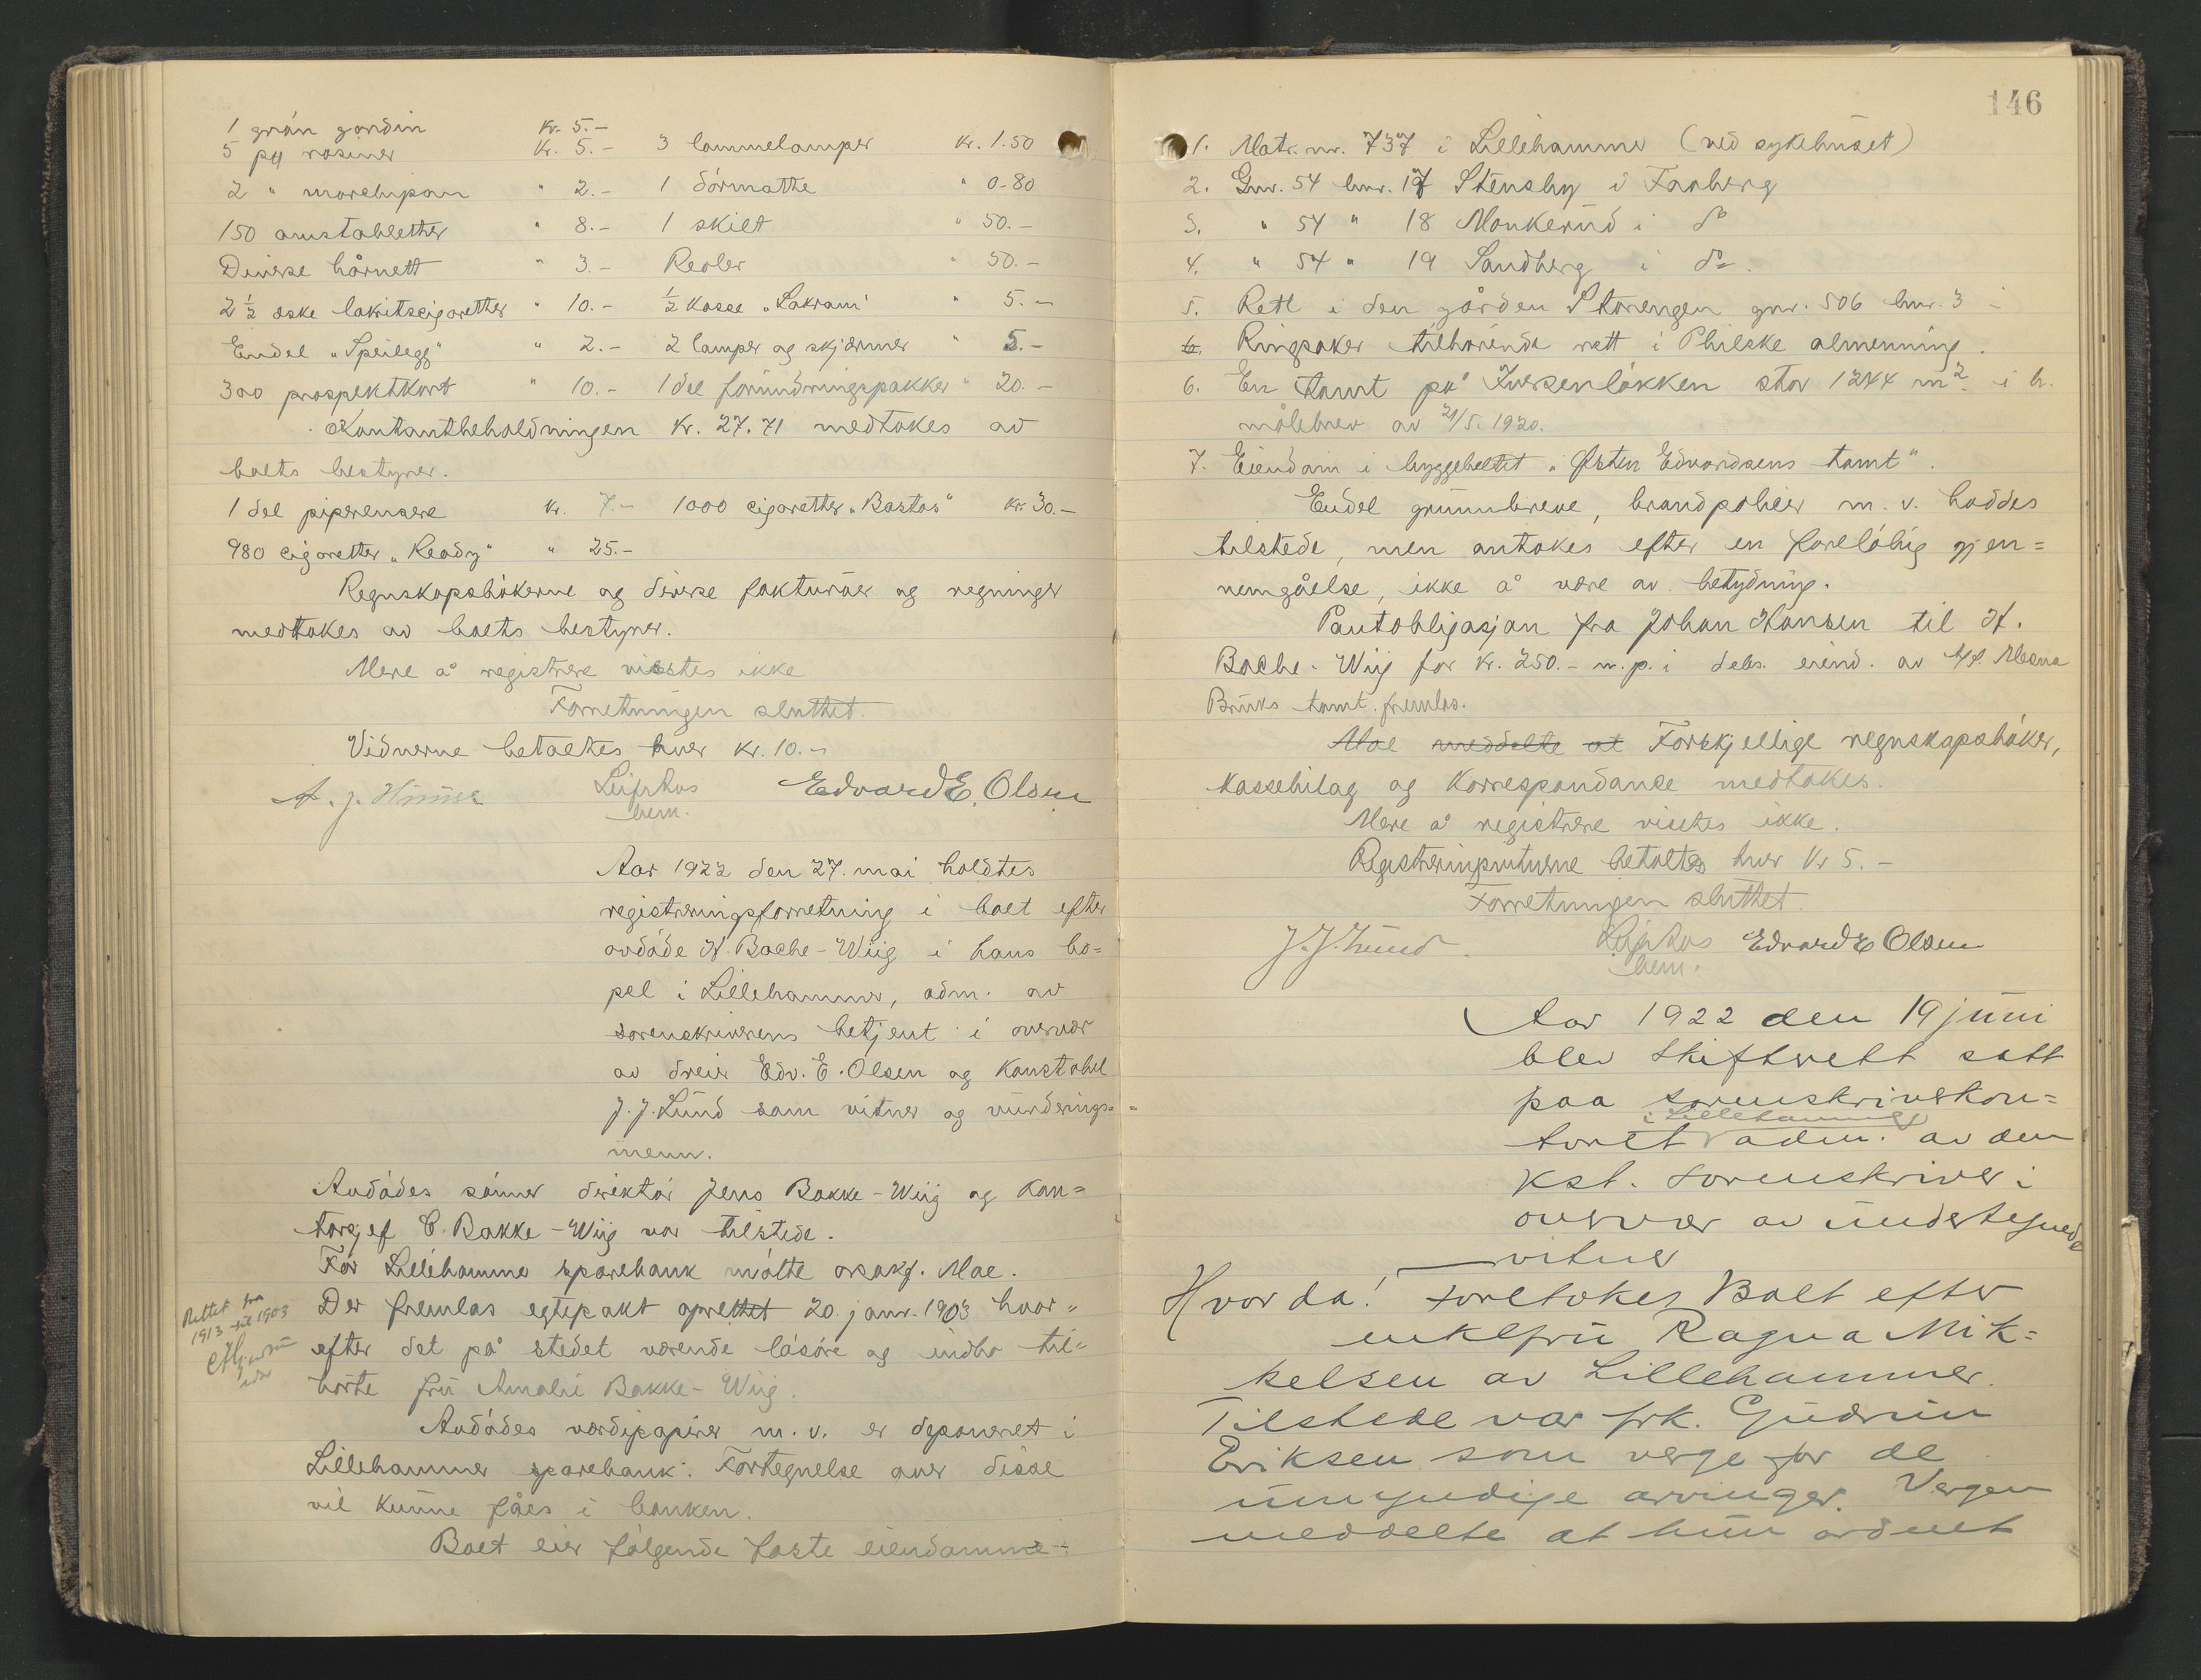 1 grön gardin Kr. 5.-
5 pk rosiner Kr. 5.- 3 lommelamper Kr. 1.50
2 " marchipan " 2.- 1 dörmatte " 0-80
150 anistabletter " 8.- 1 skilt " 50.-
Diverse hårnett " 3.- Reoler " 50.-
2 1/2 eske lakritscigaretter " 10.- 1/2 kasse "Lakram" " 5.-
Endel "Speilegg" " 2.- 2 lamper og skjærmer " 5.-
300 prospektkort " 10.- 1 del forundringspakker " 20.-
Kontantbeholdningen Kr. 27.71 medtokes av
boets bestyrer.
1 del piperensere Kr. 7.- 1000 cigaretter "Bastos" Kr. 30.-
980 cigaretter "Ready" " 25.-
Regnskapsbökerne og diverse fakturaer og regninger
medtokes av boets bestyrer.
Mere å registrere visstes ikke
Forretningen sluttet.
Vidnerne betaltes hver Kr. 10.-
Edvard E. Olsen
Aar 1922 den 27. mai holdtes
registreringsforretning i boet efter
avdöde H. Bache-Wiig i hans bo=
pel i Lillehammer, adm. av
sorenskriverens betjent i overvær
av dreier Edv. E. Olsen og Konstabel
J. J. Lund som vitner og vurderings=
menn.
Avdödes sönner direktör Jens Bakke-Wiig og Kon=
torsjef C. Bakke-Wiig var tilstede.
For Lillehammer sparebank mötte o.r.sakf. Moe.
Rettet fra
1913 til 1903
Der fremlas egtepakt oprettet 20. janr. 1903 hvor=
efter det på stedet værende lösöre og indbo til=
hörte fru Amalie Bakke-Wiig.
Avdödes verdipapirer m.v. er deponeret i
Lillehammer sparebank. Fortegnelse over disse
vil kunne fåes i banken.
Boet eier fölgende faste eiendomme-
146
1. Matr. nr. 737 i Lillehammer (ved sykehuset)
2. Gnr. 54 bnr. 17 Stensby i Faaberg
3. " 54 " 18 Monkerud i do
4. " 54 " 19 Sandberg i do.
5. Rett i den gården Storengen gnr. 506 bnr. 3 i
6. Ringsaker tilhörende rett i Philske almenning.
6. En tomt på Iversenlökken stor 1244 m2. i h.
målebrev av 21/5. 1920.
7. Eiendom i byggebeltet "Östen Edvardsens tomt".
Endel grunnbreve, brandpolicer m.v. haddes
tilstede, men antokes efter en forelöbig gjen=
nemgåelse, ikke å være av betydning.
Pantobligasjon fra Johan Hansen til H.
Bache-Wiig for Kr. 250.- m.p. i debs. eiend. av A/S. Mesna
Bruks tomt. fremlas.
Moe meddelte at Forskjellige regnskapsböker,
kassebilag og Korrespondanse medtokes.
Mere å registrere visstes ikke.
Registreringsvitnerne betaltes hver Kr 5.-
Forretningen sluttet.
J. J. Lund Edvard E Olsen
Aar 1922 den 19 juni
blev skifterett satt
paa sorenskriverkon=
i Lillehammer
toret adm. av den
kst. sorenskriver i
overvær av undertegnede
vitner
Hvorda! Foretokes Boet efter
enkefru Ragna Mik=
kelsen av Lillehammer.
Tilstede var frk. Gudrun
Eriksen som verge for de
umyndige arvinger. Vergen
meddelte at hun ordnet